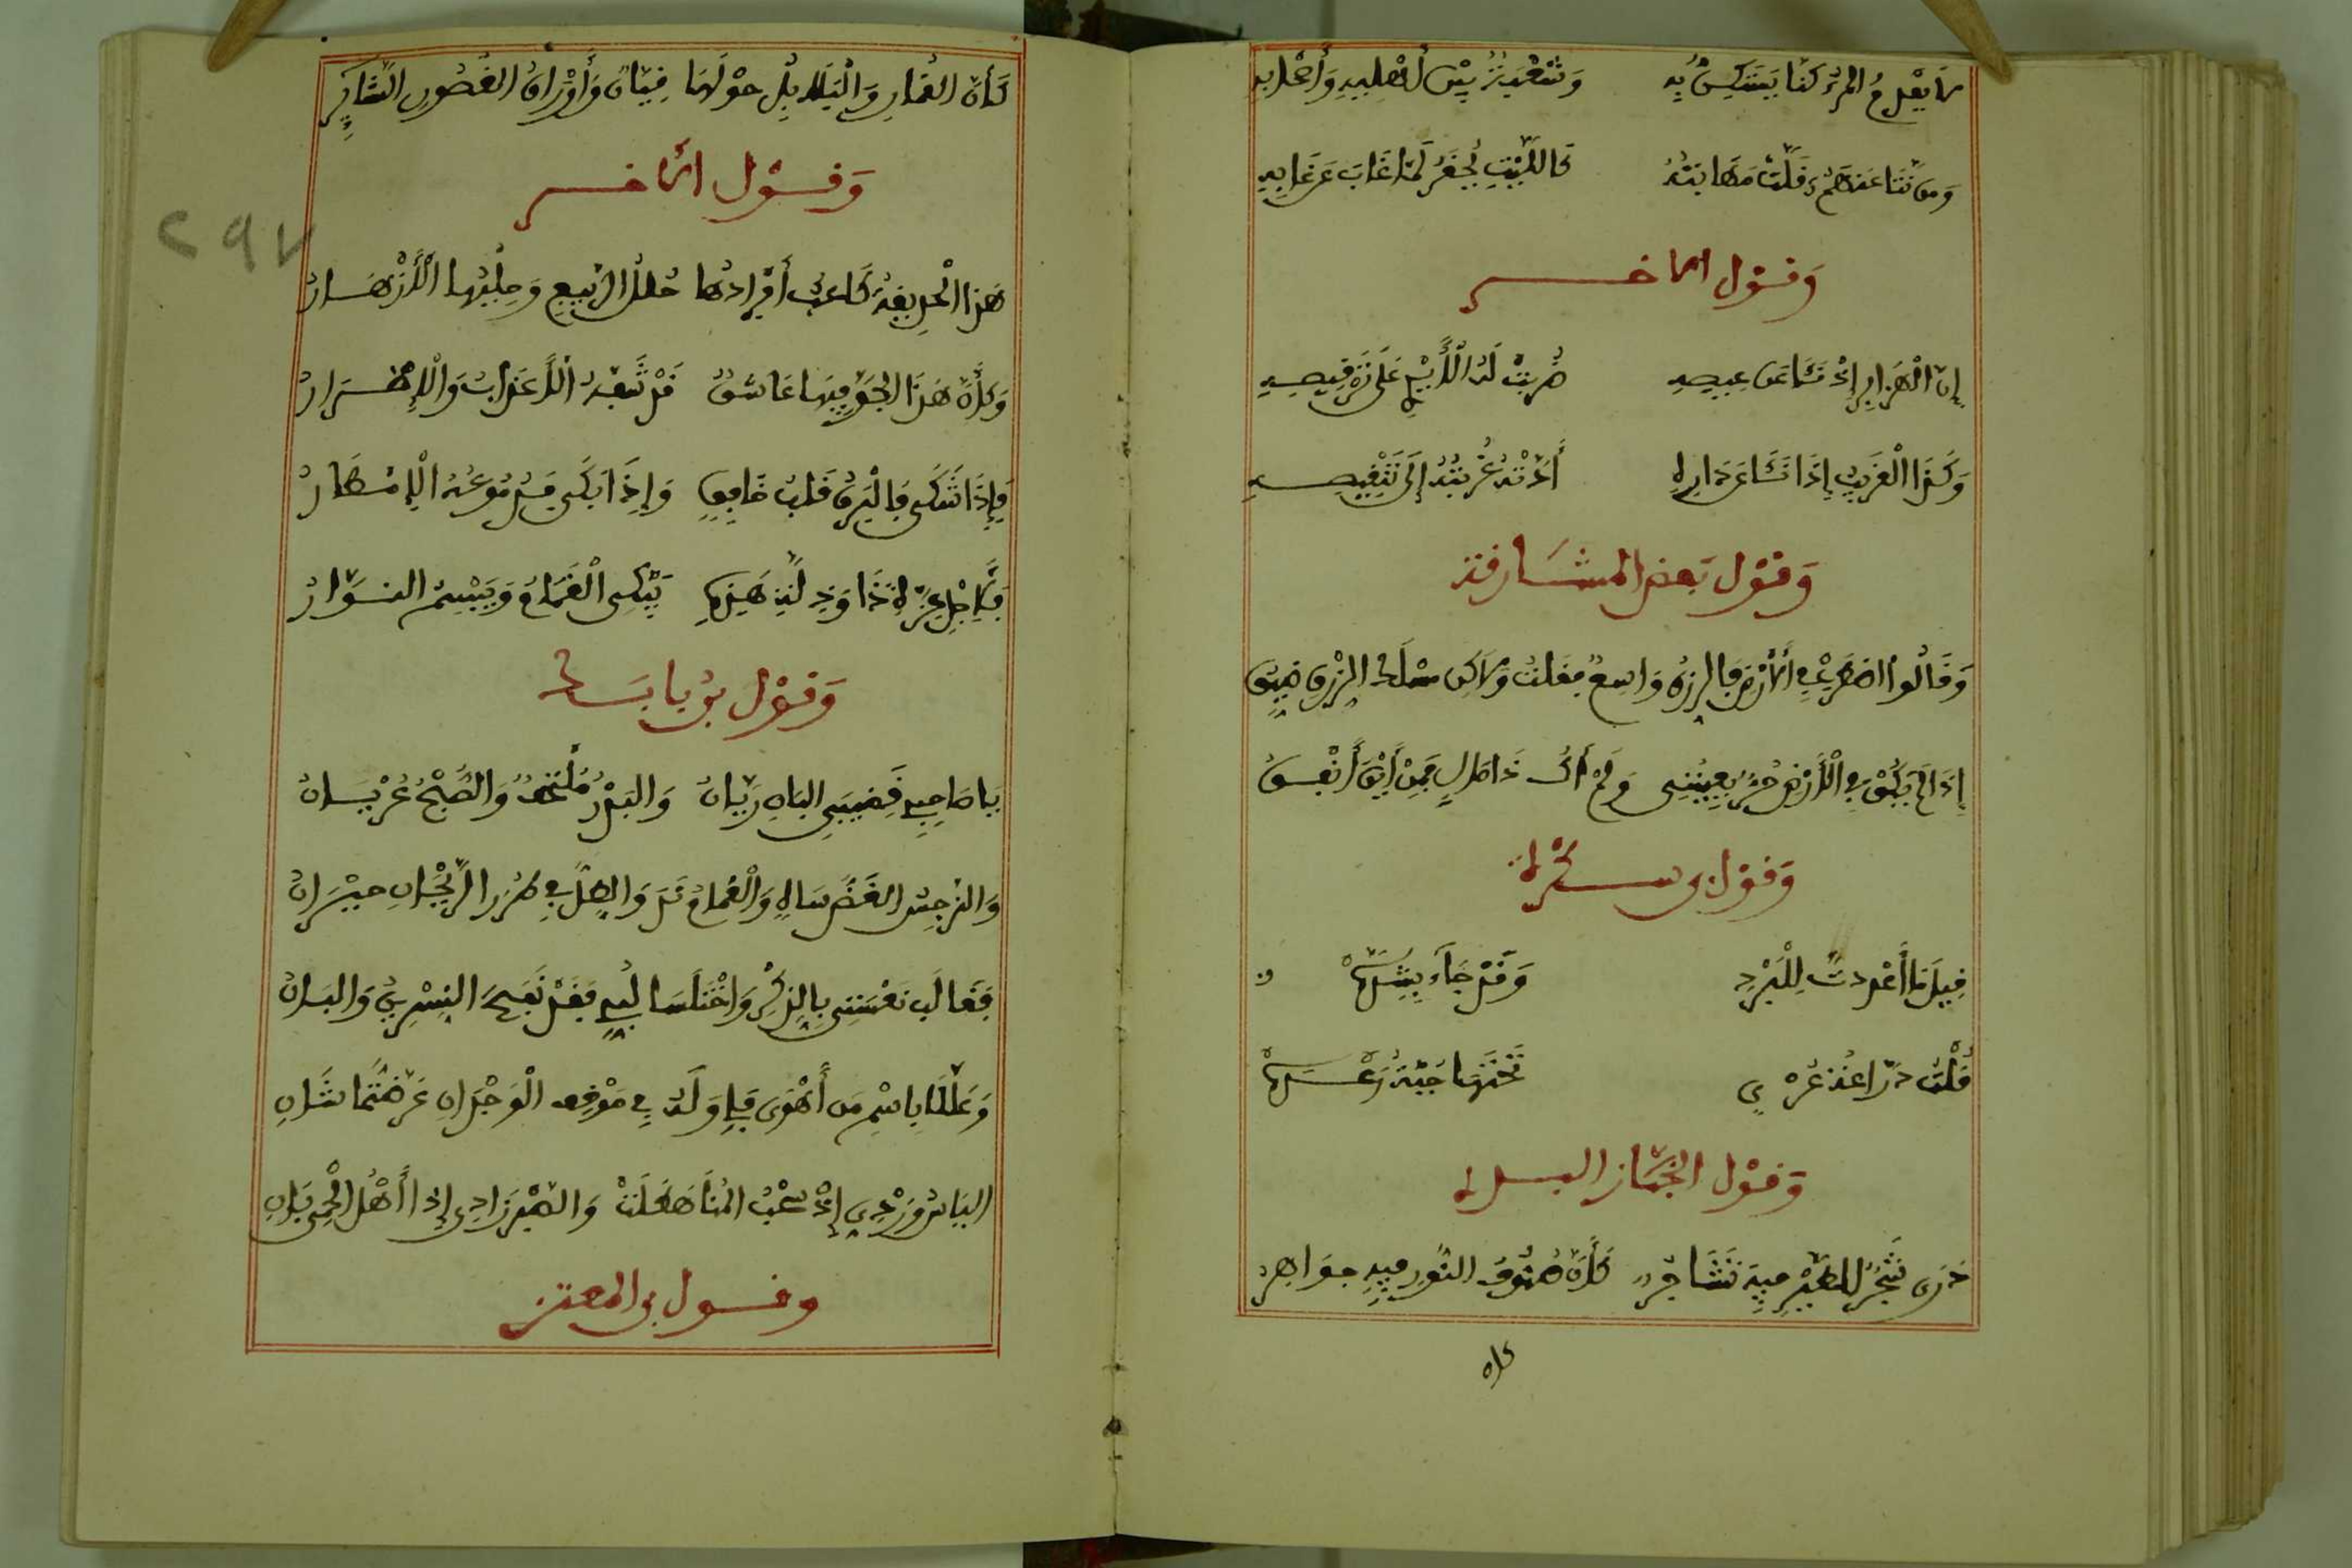 لا يعدم المرء كنا يستكن به وشعبة بين أهليه وأصحابه
ومن نئا عنهم قلت مهابته كالليث يحقر لما غاب عن غابه
وقول الاخر
إن الهزار إذ نئا عن عيصه
وكذا الغريب إذا نئا عن داره أدته غربته إلى تنقيصه
وقول بعض المشارقة
وقالوا اضطرب في الأرض فالرزق واسع فقلت ولاكن مطلب الرزق ضيق
إذا لم يكن في الأرض حر يعينني ولم أك ذا مال فمن أين أنفق
وقول بن سكرة
قيل ما أعددت للبرد وقد جاء بشده
قلت دراعة عري تحتها جبة رعده
وقول
ذرى شجر للطير فيه تشاجر كأن صنوف النور فيه جواهر
كان
كأن القماري والبلابل حولها قيان وأوراق الغصون الستائر
وقول الاخر
٢٩٧
هذا الحديقة كاعب أبرادها حلل الربيع وحليها الأزهار
وكأن هذا الجو فيها عاشق قد شفه الأعذاب والإضرار
فإذا شكى فالبرق قلب خافق وإذا بكى فدموعه الإمطار
فلأجل عزة ذا وذلة هذه يبكي الغمام ويبسم النوار
وقول بن
يا صاحبي قضيب البان ريان والبدر ملتحف والصبح عريان
والنرجس الغض ساه والغمام ند والطل في طرر الريحان حيران
فغالب نعستي بالذكر واختلسا لبي فقد نفح النسرين والبان
وعللا باسم من أهوى فإن له في موقع الوجد إن عرضتما شان
البأس وردي إذ سحب المنا هطلت والصبر زادي إذا أهل الحمى بان
وقول بن المعتز